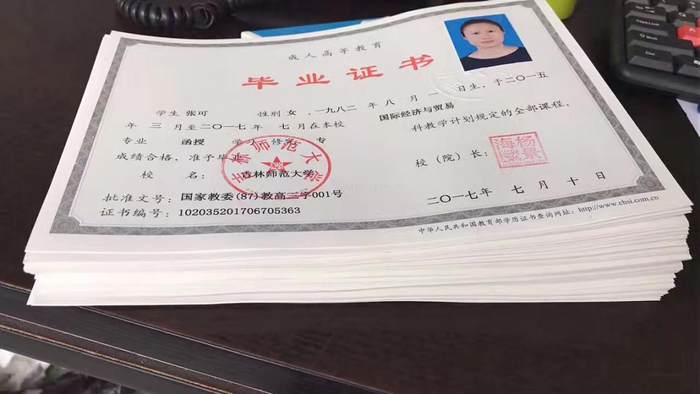 成人高等教育
毕业证书
学生 张可 性别 女，一九八二年 八月 一日生，于二〇一五
年 三月至二〇一七年 七月在本校 国际经济与贸易
专业 函授 学习 修完 专科教学计划规定的全部课程，
成绩合格，准予毕业
校 名： 吉林师范大学 校（院）长：
批准文号：国家教委(87)教高三字001号
证书编号：102035201706705363
二〇一七年 七月 十日
中华人民共和国教育部学历证书查询网址：http://www.chsi.com.cn